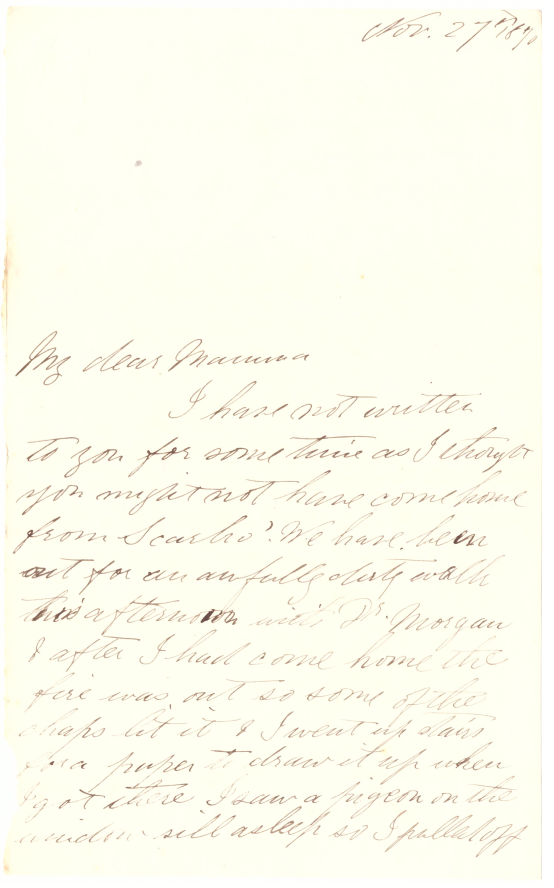 Nov. 27th 1870
My dear Mamma
I have not written
to you for some time as I thought
you might not have come home
from Scarbro'. We have been
out for an awfully dirty walk
this afternoon with Dr. Morgan
& after I had come home the
fire was out so some of the
chaps lit it & I went up stairs
for a paper to draw it up when
I got there I saw a pigeon on the
window sill asleep so I pulled off